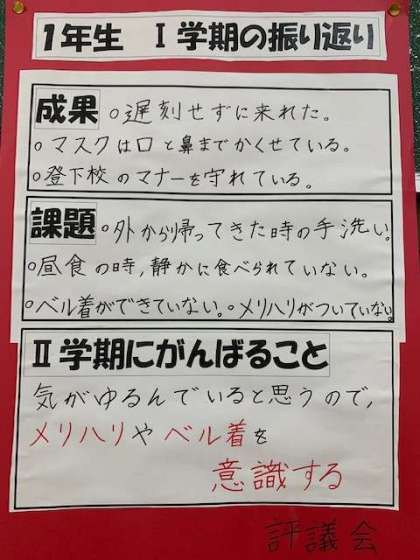 1年生 Ⅰ学期の振り返り
成果 ○遅刻せずに来れた。
○マスクは口と鼻までかくせている。
○登下校のマナーを守れている。
課題 ○外から帰ってきた時の手洗い。
○昼食の時,静かに食べられていない。
○ベル着ができていない。○メリハリがついていない。
Ⅱ学期にがんばること
気がゆるんでいると思うので,
メリハリやベル着を
意識する
評議会